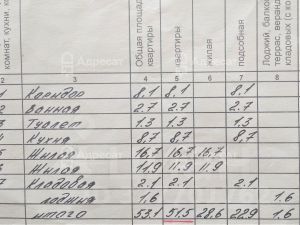 комнат, кухни, ко
Общая площадь квартиры
квартиры
жилая
подсобная
Лоджий, балко террас, веранд кладовых (с ко
2 4 5 6 7 8
1 Коридор 8,1 8,1 8,1
2 Ванная 2.7 2.7 2.7
3 Туалет 1.3 1.3 1.3
4 Кухня 8,7 8,7 8,7
5 Жилая 16,7 16,7 16,7
Жилая 11.9 11.9 11.9
7 Кладовая 2.1 2.1 2.1
лоджия 1,6 1.6
итого 53.1 51,5 28,6 22,9 1,6
Адресат